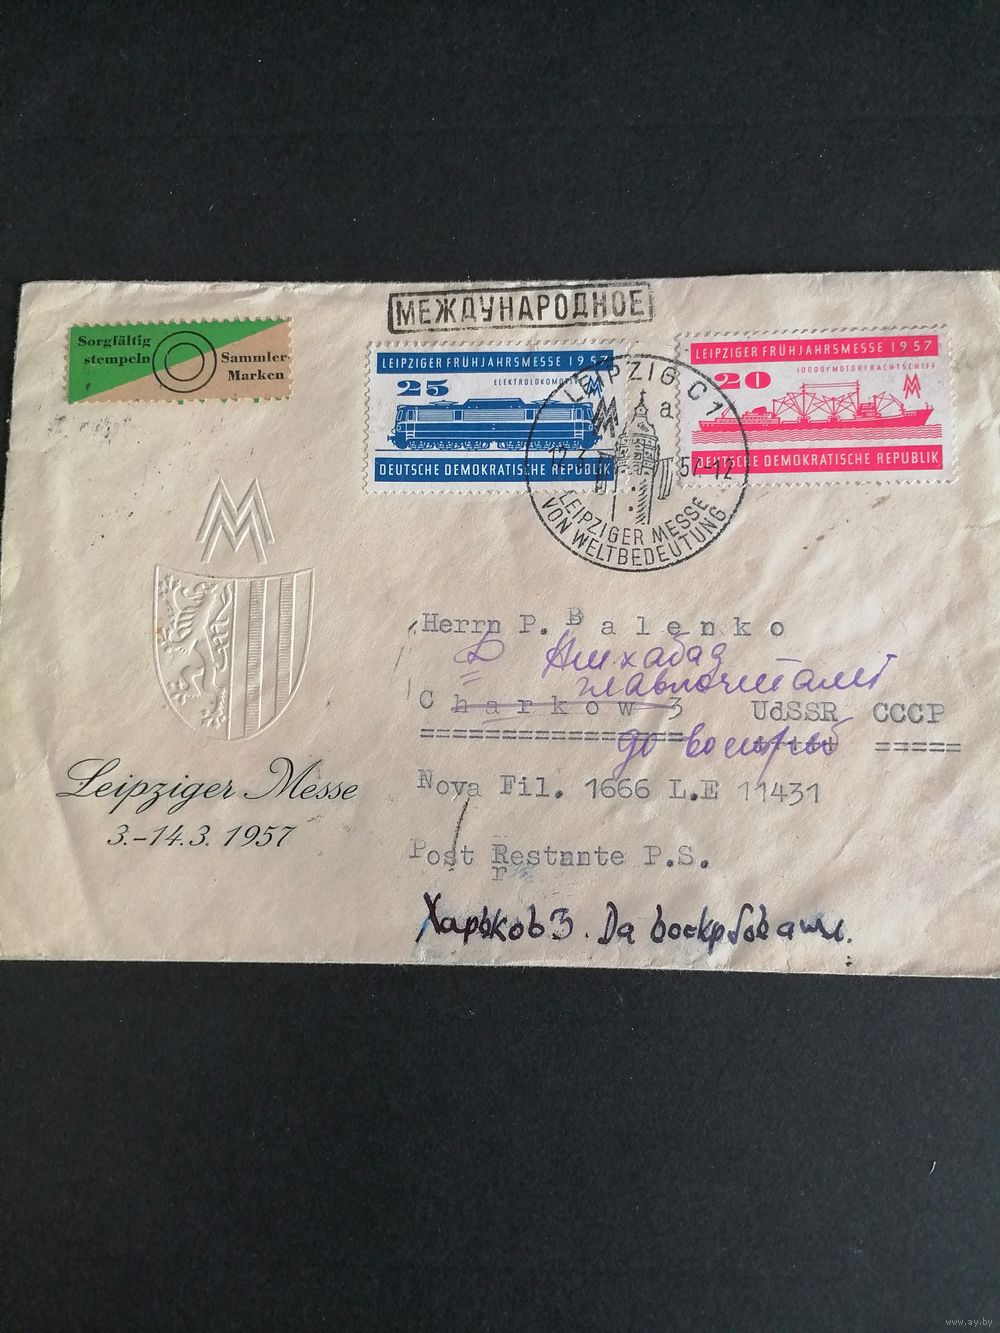 МЕЖДУНАРОДНОЕ
Sorgfältig
stempeln
Sammler-
Marken
LEIPZIGER FRÜHJAHRSMESSE 1957
25
ELEKTROLOKOMOTIVE
DEUTSCHE DEMOKRATISCHE REPUBLIK
LEIPZIGER FRÜHJAHRSMESSE 1957
20
10000t MOTORFRACHTSCHIFF
DEUTSCHE DEMOKRATISCHE REPUBLIK
LEIPZIG C1
a
12.3. 57-12
LEIPZIGER MESSE
VON WELTBEDEUTUNG
Leipziger Messe
3.-14.3. 1957
Herrn P. Balenko
Ашхабад
главпочтамт
Charkow 3 UdSSR CCCP
до востреб
Nova Fil. 1666 L.E 11431
Post Restante P.S.
r
Харьков 3. Da
www.ay.by